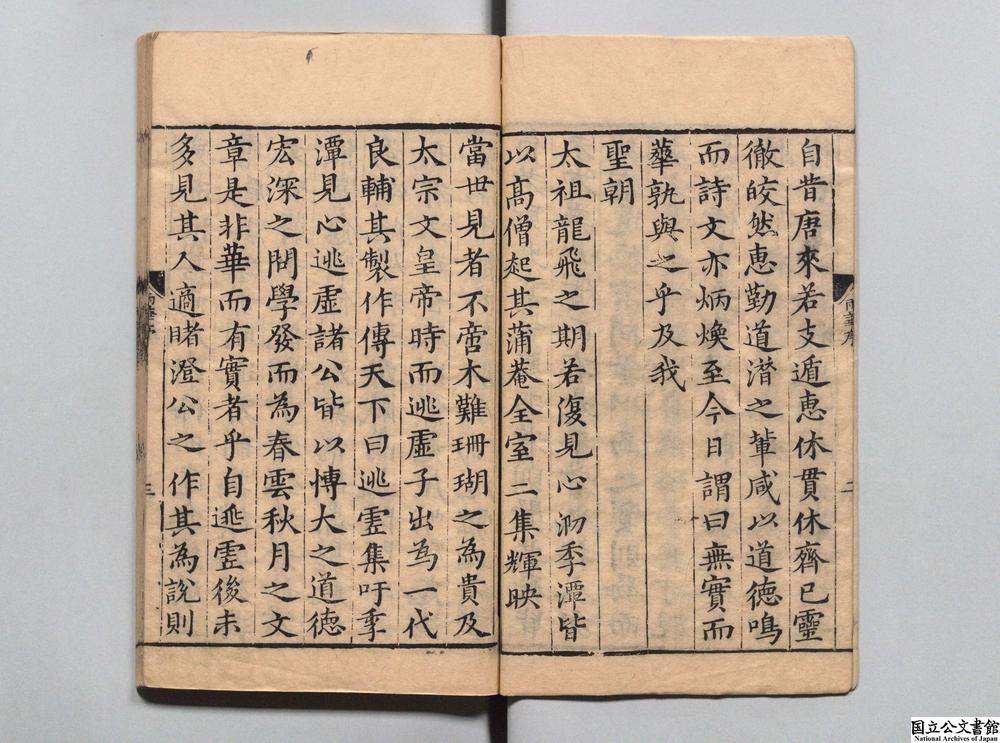 自昔唐來若支遁惠休貫休齊已靈
徹皎然惠勤道潛之軰咸以道德鳴
而詩文亦炳煥至今日謂曰無實而
華孰與之乎及我
聖朝
太祖龍飛之期若復見心泐季潭皆
以高僧起其蒲菴全室二集輝映
二
當世見者不啻木難珊瑚之為貴及
太宗文皇帝時而逃虛子出為一代
良輔其製作傳天下曰逃虛集吁季
潭見心逃虛諸公皆以博大之道德
宏深之問學發而為春雲秋月之文
章是非華而有實者乎自逃虛後未
多見其人適睹澄公之作其為說則
三
国立公文書館
National Archives of Japan